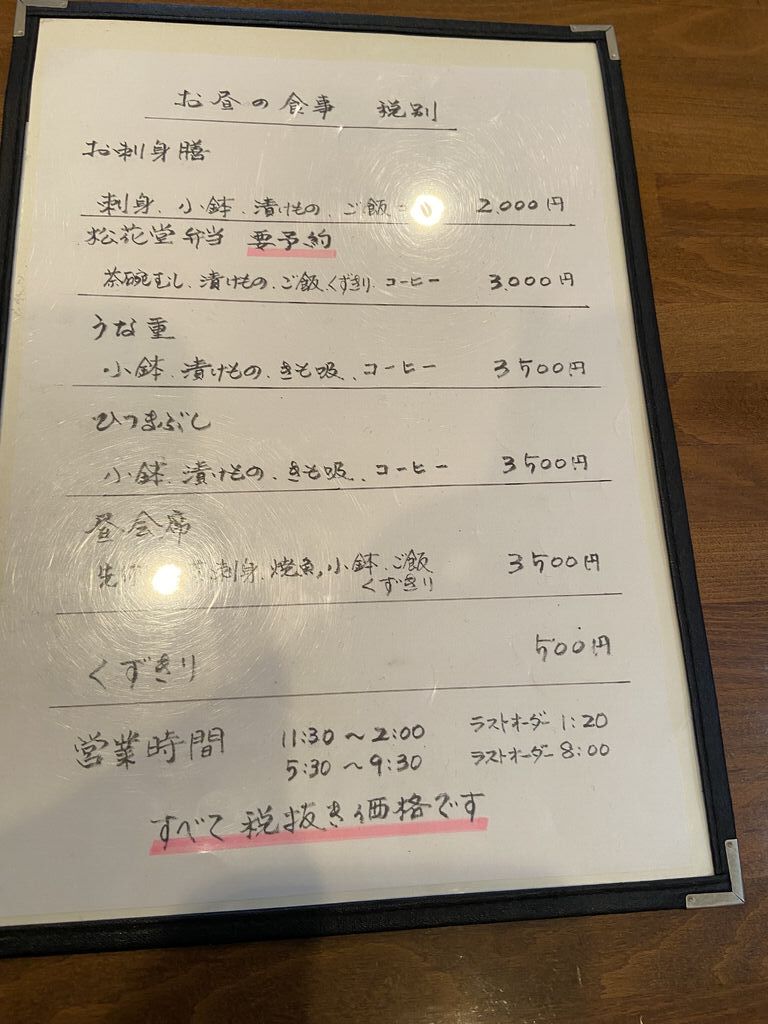 お昼の食事 税別
お刺身膳
刺身、小鉢、漬けもの、ご飯 2,000円
松花堂弁当 要予約
茶碗むし、漬けもの、ご飯、くずきり、コーヒー 3,000円
うな重
小鉢、漬けもの、きも吸、コーヒー 3500円
ひつまぶし
小鉢、漬けもの、きも吸、コーヒー 3500円
昼会席
刺身、焼魚、小鉢、ご飯 3500円
くずきり
くずきり 500円
営業時間 11:30〜2:00 ラストオーダー 1:20
5:30〜9:30 ラストオーダー 8:00
すべて税抜き価格です